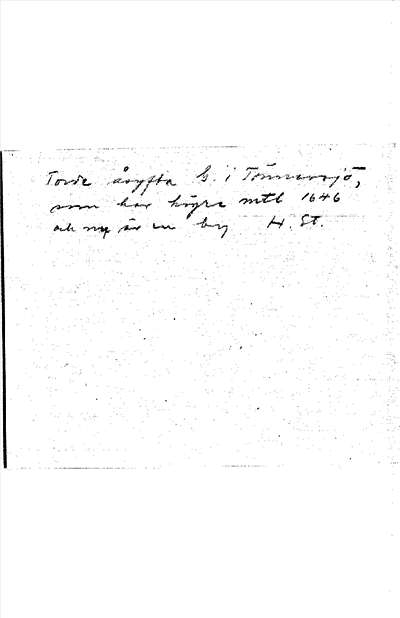 Torde åsyfta G. i Tönnersjö,
som har högre mtl 1646
och nu är en by H. St.